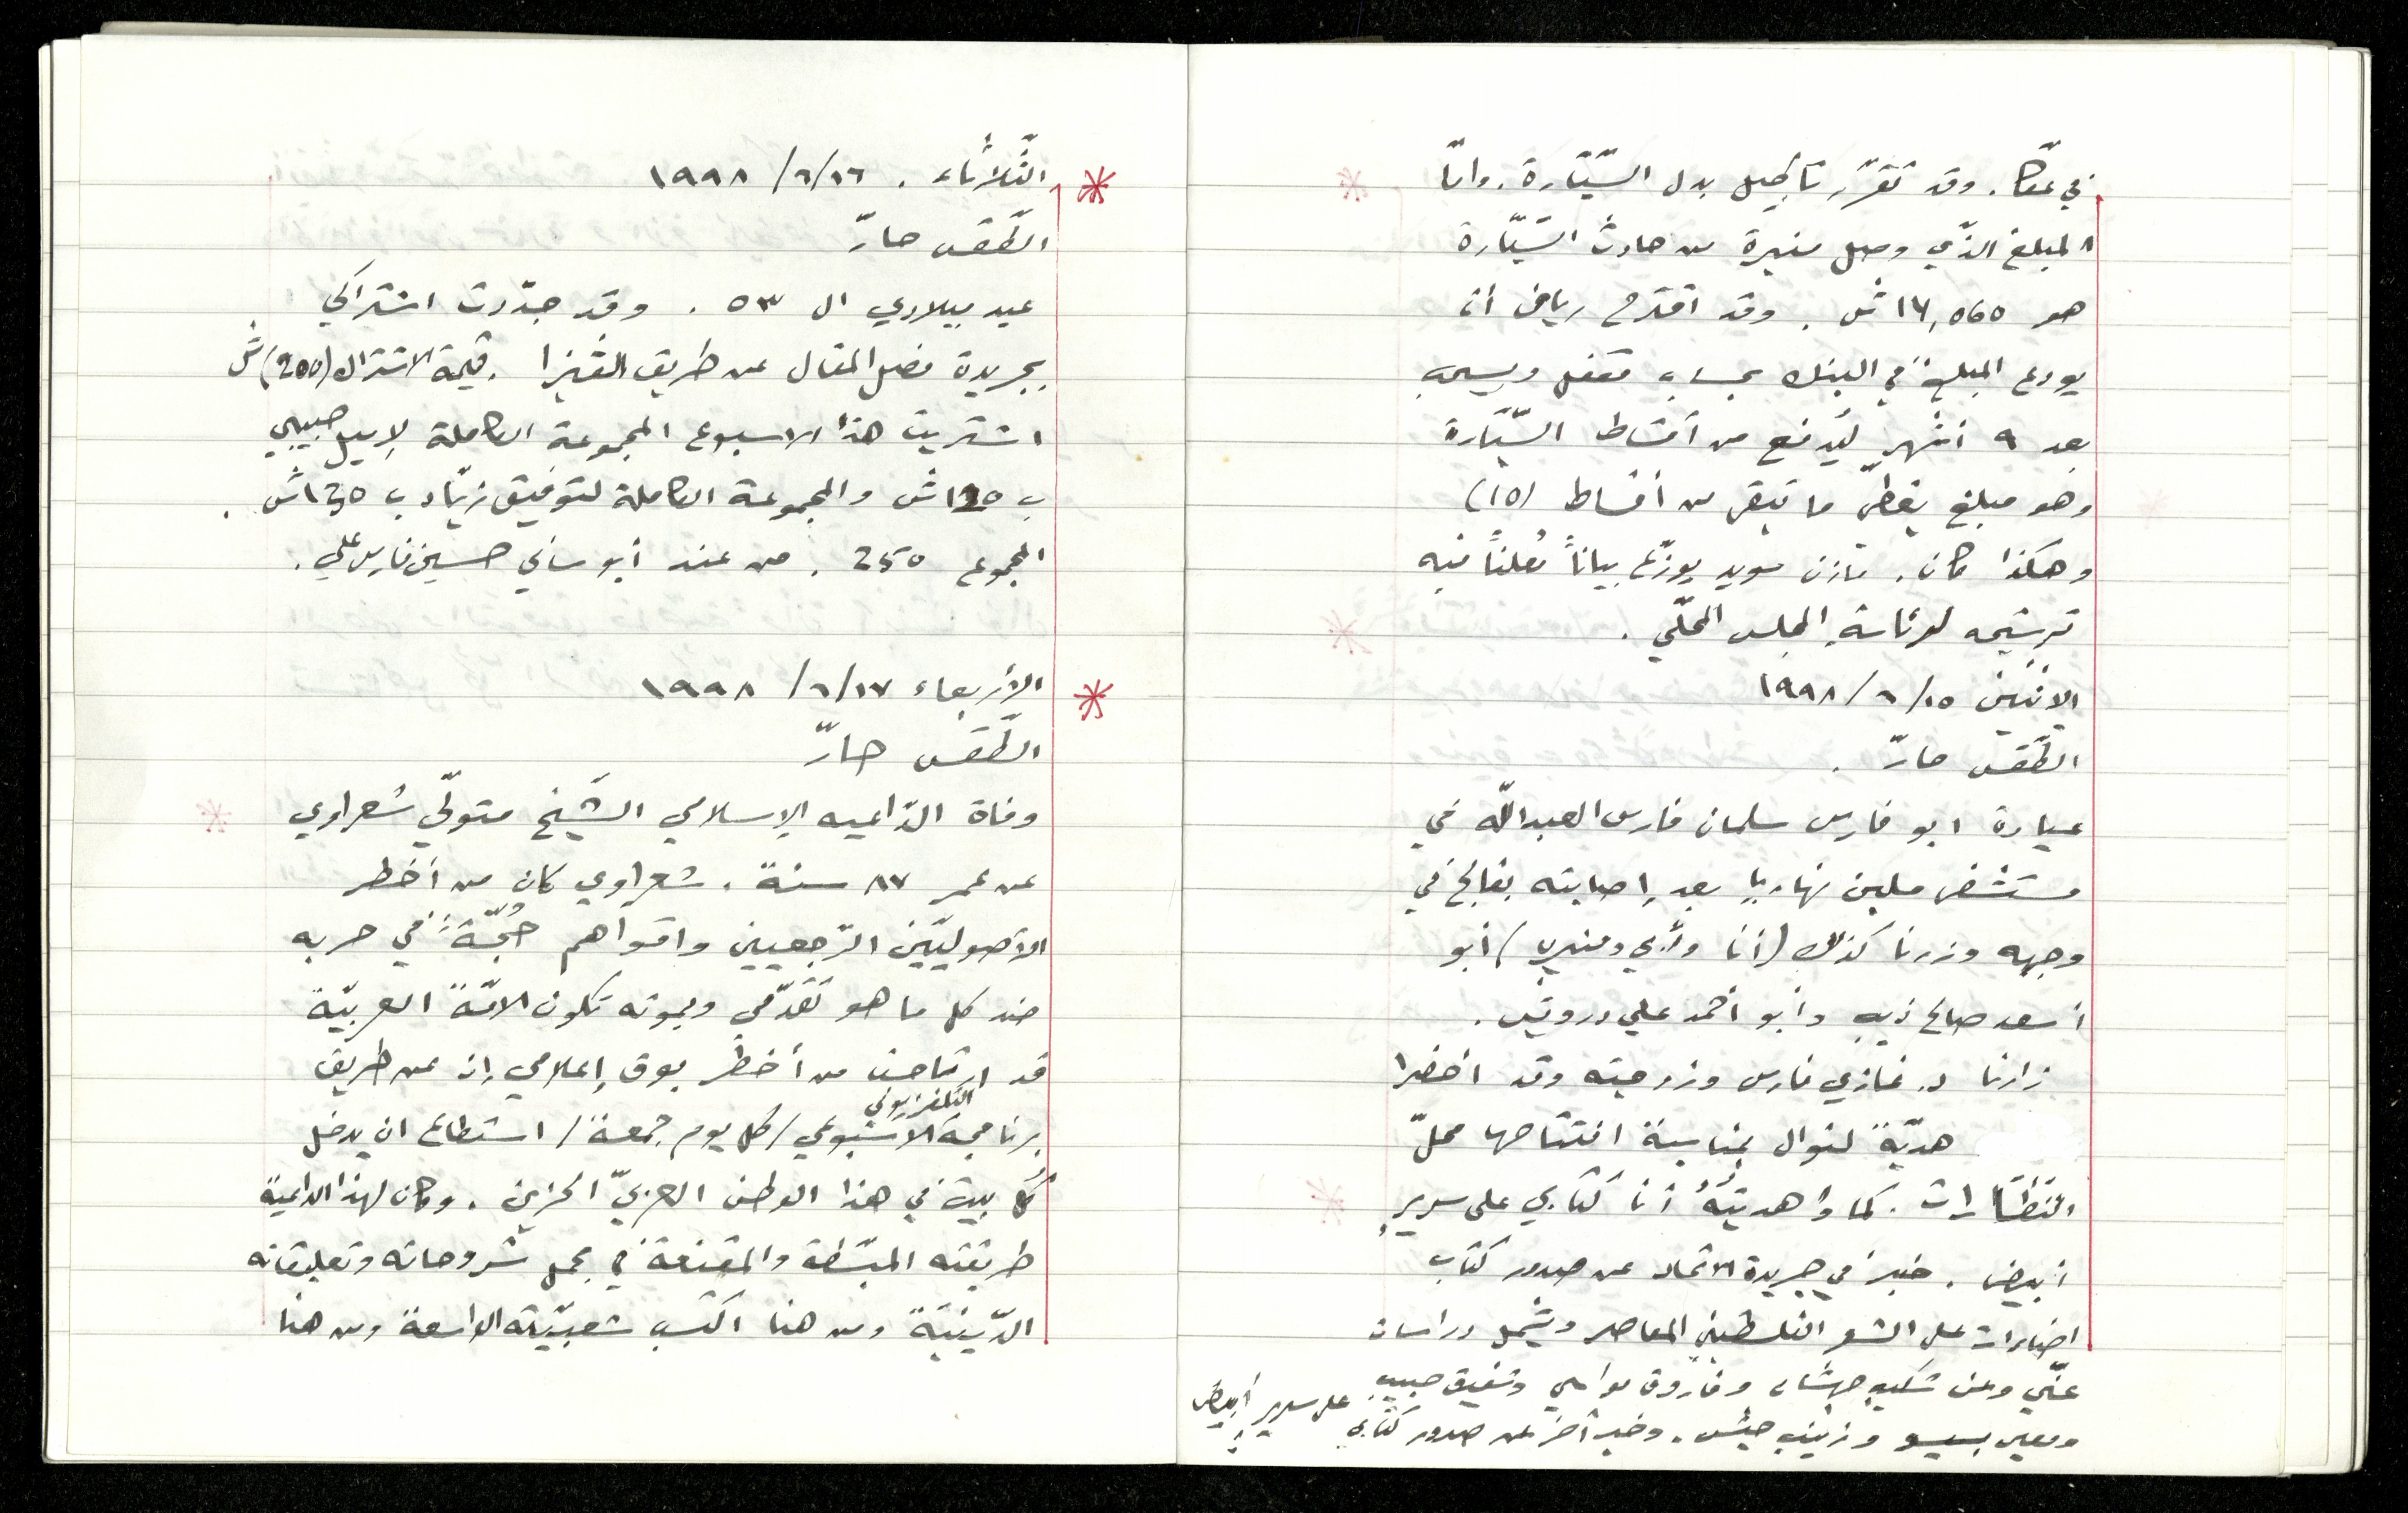 في عكّا. وقد تقرّر تأجيل بدل السّيّارة. وامّا
المبلغ الذّي وصل منيرة من حادث السّيّارة
هو ١٦,٥٦٥ ش. وقد اقترح رياض أن
يودع المبلغ في البنك بحساب مقفل ويسحب
بعد ٩ أشهر ليُدفع من أقساط السّيّارة
وهو مبلغ يغطّي ما تبقى من أقساط (١٥)
وهكذا كان. مازن سويد يوزّع بياناً مُعلناً فيه
ترشيحه لرئاسةِ المجلس المحلّي.
الاثنين ١٥/٦/١٩٩٨
الطّقس حارّ.
عيادة ابو فارس سلمان فارس العبداللّه في
مستشفى نهاريا بعد إصابته بفالج في
وجهه وزرنا كذلك (أنا وأبي ومنيرة) أبو
أسعد صالح ذيب وأبو أحمد علي درويش.
زارنا د. غازي فارس وزوجته وقد احضرا
هديّة لنوال بمناسبة افتتاحها محلّ
النّظّارات. كما وأهديتُهُ أنا كتابي على سريرٍ
أبيض. خبر في جريدة الاتحاد عن صدور كتاب
اضاءات على الشعر الفلسطيني المعاصر ويشمل دراسات
عنّي وعن شكيب جهشان وفاروق مواسي وشفيق حبيب
ومعين بسيسو وزينب حبش. وخبر آخر عن صدور كتابي على سرير أبيض
الثّلاثاء. ١٦/٦/١٩٩٨
الطّقس حارّ
عيد ميلادي ال ٥٣. وقد جدّدت اشتراكي
بجريدة فصل المقال عن طريق الڤيزا. قيمة الاشتراك (200) ش
اشتريت هذا الاسبوع المجموعة الكاملة لإميل حبيبي
ب ١١٥ ش والمجموعة الكاملة لتوفيق زيّاد ب ١٣٥ ش.
المجموع 250. من عند أبو ساني حسين فارس علي.
الأربعاء ١٧/٦/١٩٩٨
الطّقس حارّ
وفاة الدّاعيه الإسلامي الشّيخ متولّي شعراوي
عن عمر ٨٧ سنة. شعراوي كان من أخطر
الأصوليّين الرّجعيين واقواهم حُجّةً في حربه
ضد كل ما هو تقدّمي وبموته تكون الامّة العربيّة
قد ارتاحت من أخطر بوق إعلامي إذ عن طريق
برنامجه الأسبوعي التلفزيوني /كل يوم جمعة/ استطاع ان يدخل
كُل بيت في هذا الوطن العربيّ الحزين. وكان لهذا الداعية
طريقته المبسّطة والمقنعة في مجمل شروحاته وتعليقاته
الدّينيّة ومن هنا اكتسب شعبيّته الواسعة ومن هنا